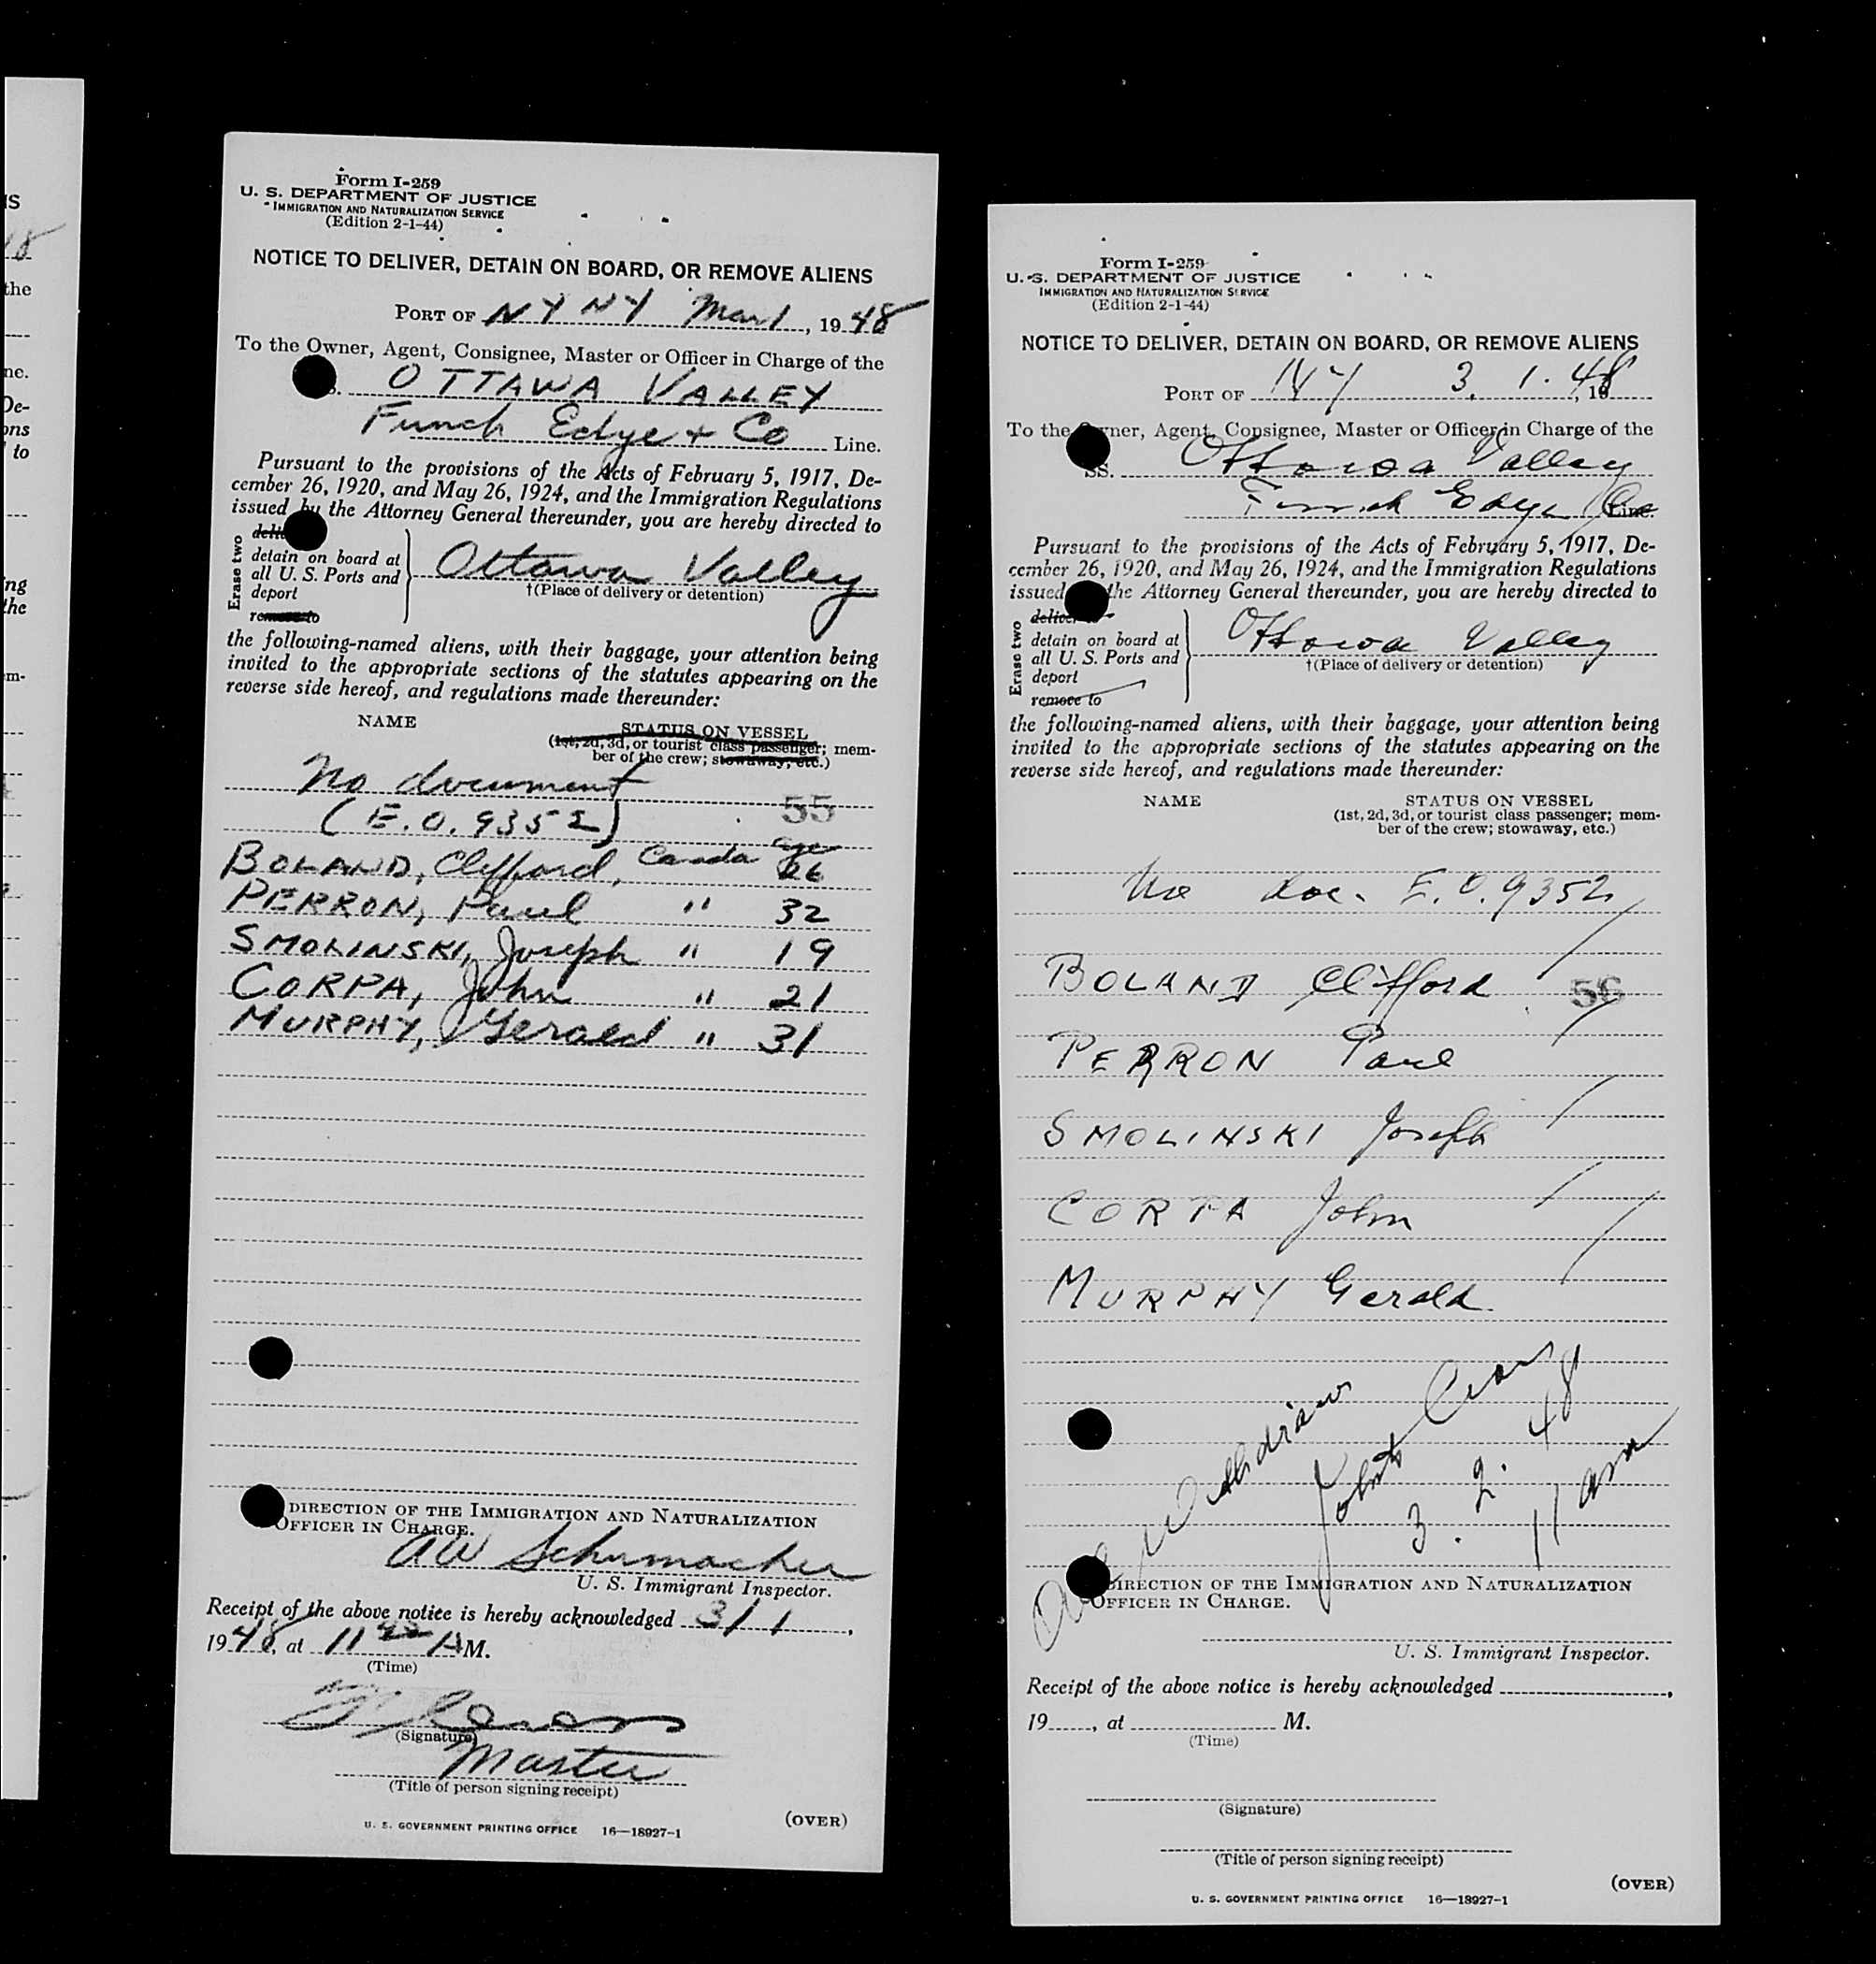 IS
18
the
ne.
De-
ons
to
ing
the
em-
Form I-259
U. S. DEPARTMENT OF JUSTICE
IMMIGRATION AND NATURALIZATION SERVICE
(Edition 2-1-44)
NOTICE TO DELIVER, DETAIN ON BOARD, OR REMOVE ALIENS
PORT OF NY NY Mar 1, 1948
To the Owner, Agent, Consignee, Master or Officer in Charge of the
OTTAWA VALLEY
Funch Edye + Co Line.
Pursuant to the provisions of the Acts of February 5, 1917, De-
cember 26, 1920, and May 26, 1924, and the Immigration Regulations
issued by the Attorney General thereunder, you are hereby directed to
Erase two
detain on board at
all U. S. Ports and
deport
remove to
Ottawa Valley
†(Place of delivery or detention)
the following-named aliens, with their baggage, your attention being
invited to the appropriate sections of the statutes appearing on the
reverse side hereof, and regulations made thereunder:
NAME STATUS ON VESSEL
(1st, 2d, 3d, or tourist class passenger; mem-
ber of the crew; stowaway, etc.)
No document
55
(E.O. 9352)
age
BOLAND, Clifford, Canada 26
PERRON, Paul " 32
SMOLINSKI, Joseph " 19
CORPA, John " 21
MURPHY, Gerald " 31
DIRECTION OF THE IMMIGRATION AND NATURALIZATION
OFFICER IN CHARGE.
AW Schumacher
U. S. Immigrant Inspector.
Receipt of the above notice is hereby acknowledged 3/1,
1948, at 11 AM.
(Time)
(Signature)
Master
(Title of person signing receipt)
(OVER)
U. S. GOVERNMENT PRINTING OFFICE 16—18927-1
Form I-259
U. S. DEPARTMENT OF JUSTICE
IMMIGRATION AND NATURALIZATION SERVICE
(Edition 2-1-44)
NOTICE TO DELIVER, DETAIN ON BOARD, OR REMOVE ALIENS
PORT OF NY 3. 1. 48, 19
To the Owner, Agent, Consignee, Master or Officer in Charge of the
SS. Ottawa Valley
Funch Edye Co Line.
Pursuant to the provisions of the Acts of February 5, 1917, De-
cember 26, 1920, and May 26, 1924, and the Immigration Regulations
issued the Attorney General thereunder, you are hereby directed to
Erase two
deliver to
detain on board at
all U. S. Ports and
deport
remove to
Ottawa Valley
†(Place of delivery or detention)
the following-named aliens, with their baggage, your attention being
invited to the appropriate sections of the statutes appearing on the
reverse side hereof, and regulations made thereunder:
NAME STATUS ON VESSEL
(1st, 2d, 3d, or tourist class passenger; mem-
ber of the crew; stowaway, etc.)
No doc. E.O. 9352
BOLAND Clifford 56
PERRON Paul
SMOLINSKI Joseph
CORPA John
MURPHY Gerald
withdrawn
3. 2. 48
11 am
DIRECTION OF THE IMMIGRATION AND NATURALIZATION
OFFICER IN CHARGE.
U. S. Immigrant Inspector.
Receipt of the above notice is hereby acknowledged,
19, at M.
(Time)
(Signature)
(Title of person signing receipt)
(OVER)
U. S. GOVERNMENT PRINTING OFFICE 16—18927-1